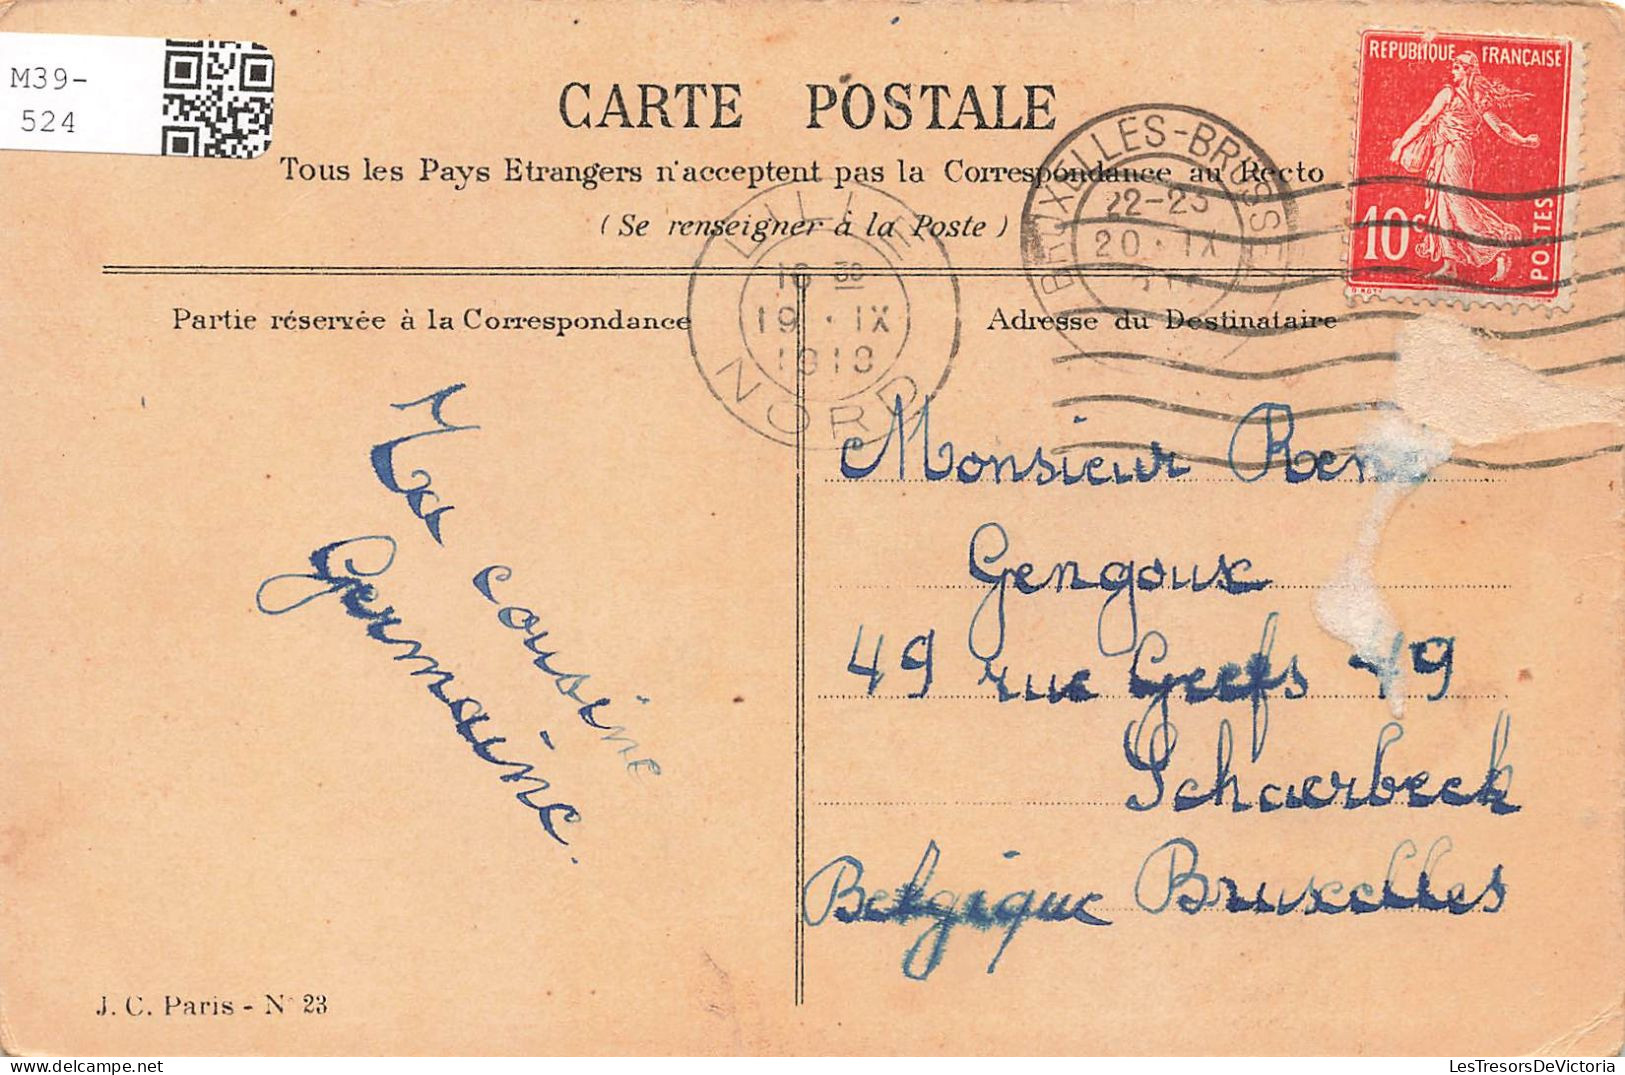 M39-
524
CARTE POSTALE
Tous les Pays Etrangers n'acceptent pas la Correspondance au Recto
( Se renseigner à la Poste )
REPUBLIQUE FRANÇAISE
10c
POSTES
BRUXELLES-BRUSSEL
22-23
20 · IX
LILLE
16 30
19 · IX
1919
NORD
Partie réservée à la Correspondance
Adresse du Destinataire
Ma cousine
Germaine.
Monsieur René
Gengoux
49 rue Geefs 49
Schaerbeek
Belgique Bruxelles
J. C. Paris - N° 23
LesTresorsDeVictoria